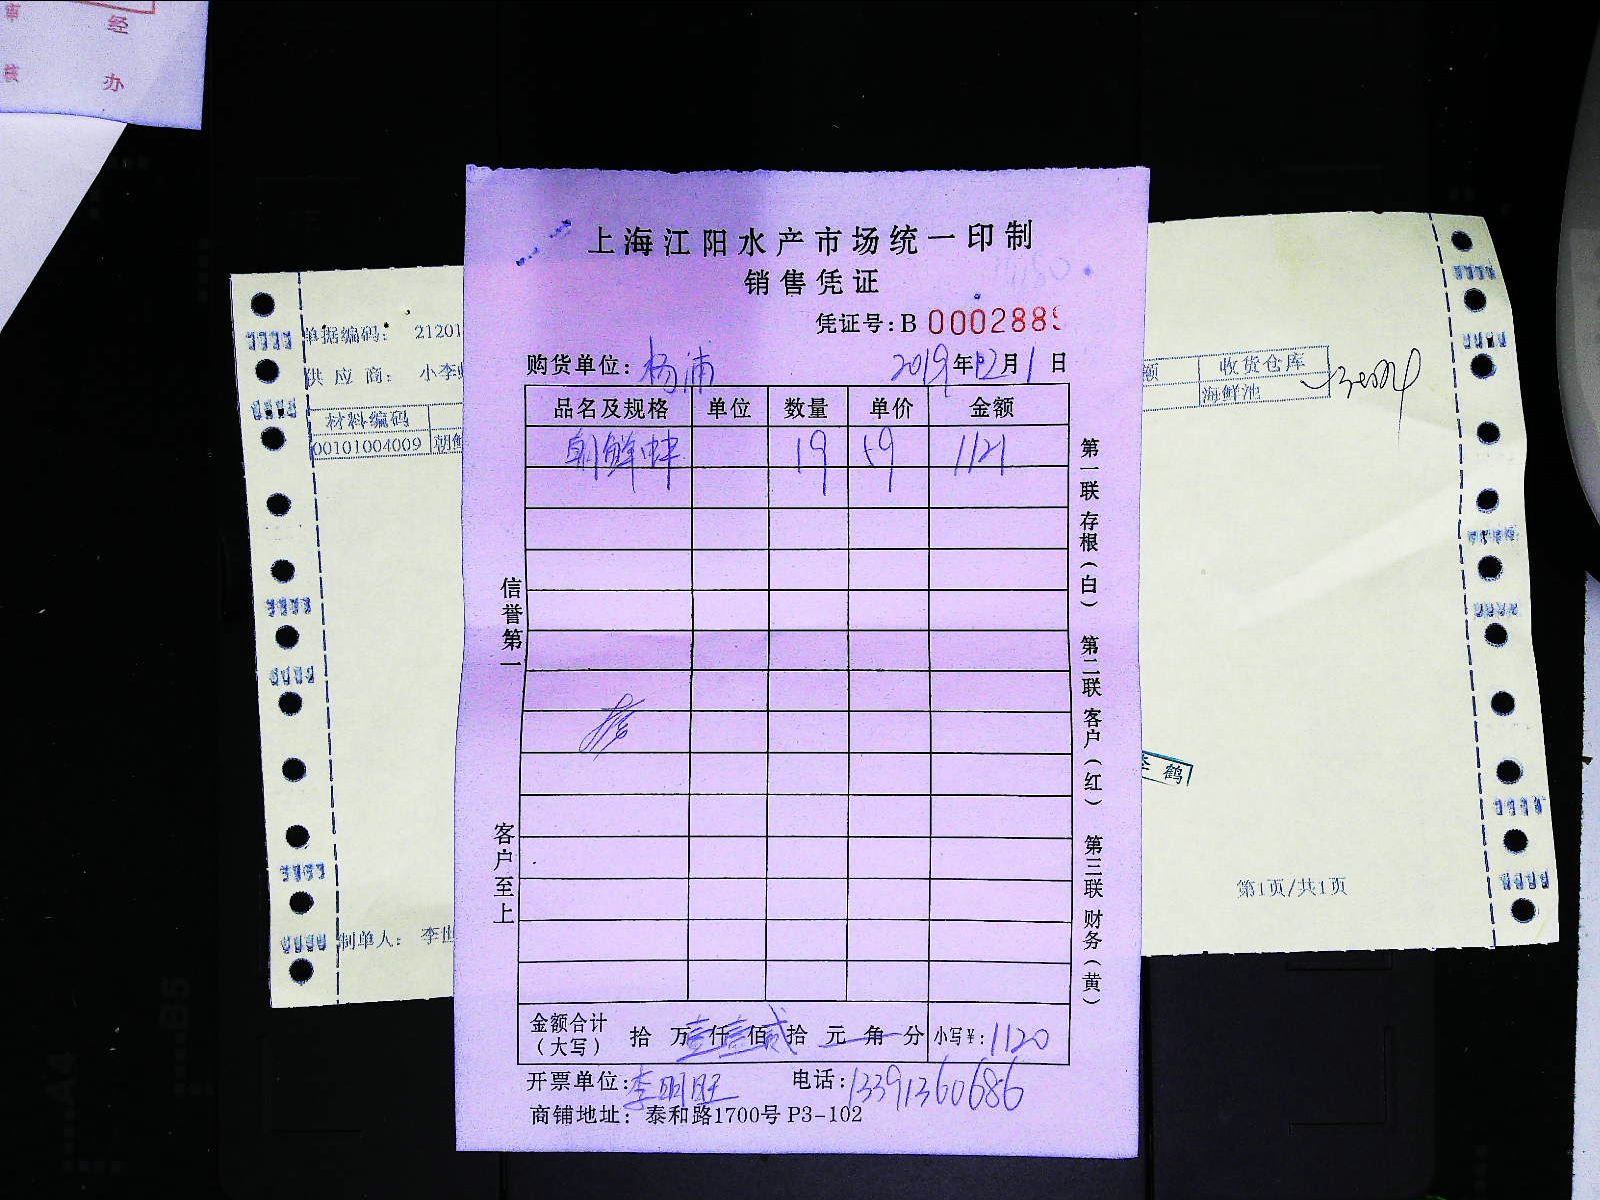 审 经
核 办
上海江阳水产市场统一印制
销售凭证
凭证号:B 0002889
购货单位:杨浦 2019年12月1日
品名及规格 单位 数量 单价 金额
朝鲜蚌 19 59 1121
第一联 存根(白) 第二联 客户(红) 第三联 财务(黄)
信誉第一
客户至上
金额合计(大写) 拾万壹仟壹佰贰拾元角分 小写¥:1120
开票单位:李明旺 电话:13391360686
商铺地址:泰和路1700号 P3-102
单据编码: 21201
供应商: 小李
材料编码
00101004009 朝鲜
制单人: 李世
额 收货仓库
海鲜池
鹤
第1页/共1页